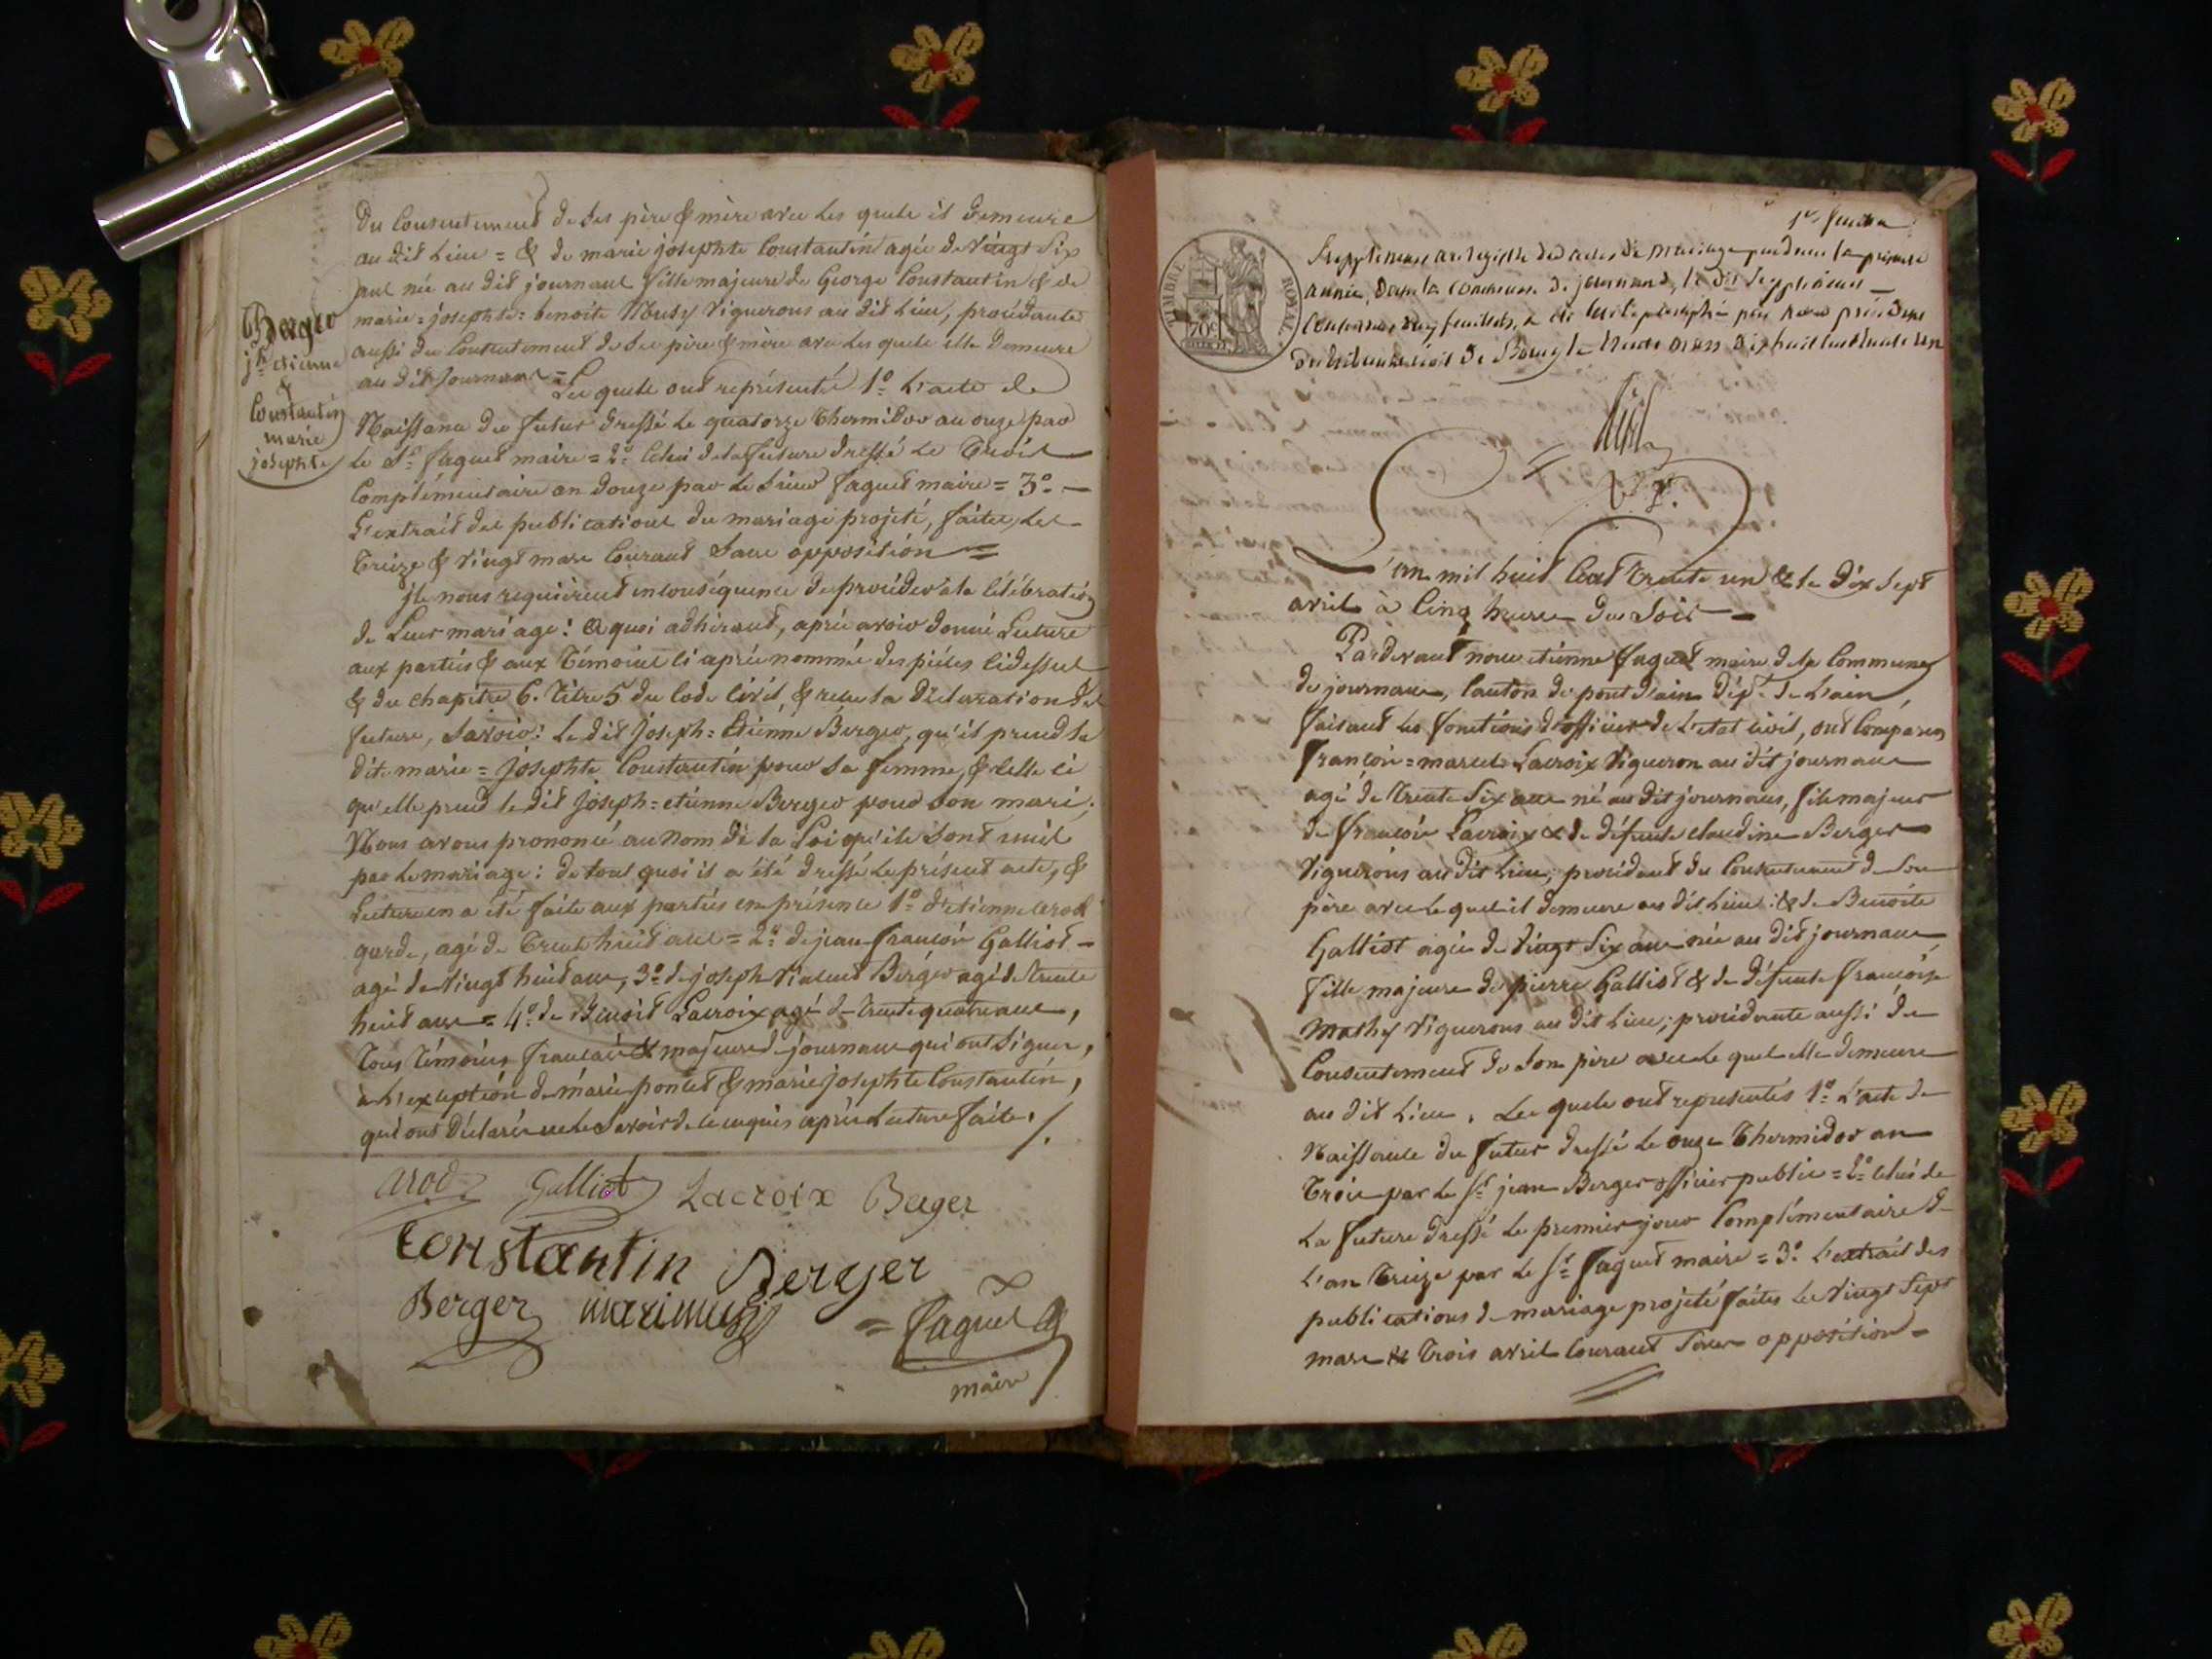 du Consentement de ses père & mère avec les quels il demeure
au dit Lieu = & de marie josephte Constantin agée de vingt six
ans née au dit journans fille majeure de George Constantin & de
marie = josephte = benoite Vignerons au dit Lieu, procédante
aussi du Consentement de ses père & mère avec les quels elle demeure
au dit Journans = Les quels ont représenté 1º L'acte de
Naissance du futur dressé le quatorze Thermidor an onze par
le Sr. faguet maire = 2º Celui de la future dressé le Trois
Complémentaire an douze par le Sieur faguet maire = 3º
L'extrait des publications du mariage projeté, faites les
Treize & vingt mars Courant Sans opposition =
Berger
jh. etienne
&
Constantin
marie
josephte
jls nous requièrent en conséquence de procéder à la Célébration
de Leur mariage : a quoi adhérant, après avoir donné Lecture
aux parties & aux Témoins ci après nommés des pièces cidessus
& du chapitre 6. Titre 5 du Code Civil, & reçu la déclaration des
futurs, Savoir : le dit Joseph = Etienne Berger, qu'il prend la
dite marie = josephte Constantin pour sa femme, & celle ci
qu'elle prend le dit Joseph = etienne Berger pour son mari ;
Nous avons prononcé au Nom de la Loi qu'ils Sont unis
par le mariage : de tout quoi il a été dressé le présent acte, &
Lecture en a été faite aux parties en présence 1º d'etienne arod
garde, agé de Trente huit ans = 2º de jean françois Galliot
agé de vingt huit ans, 3º de joseph Vincent Berger agé de trente
huit ans = 4º de Benoit Lacroix agé de trente quatre ans,
Tous Témoins français & majeurs de journans qui ont Signés,
à l'exception de marie poncet & marie josephte Constantin,
qui ont déclaré ne le Savoir de ce enquis après Lecture faite. /.
arod Galliot Lacroix Berger
Constantin Berger
Berger maximus
= faguet
maire
1er feuillet
TIMBRE ROYAL
70c
Supplément au registre des actes de Mariage pendant la présente
année, dans la Commune de journans, le dit Supplément
feuillets, a été Coté & paraphé par nous président
du tribunal civil de Bourg le trente mars dix huit cent trente un
L'an mil huit Cent Trente un & le dix sept
avril à Cinq heures du Soir
Pardevant nous etienne faguet maire de la Commune
de journans, Canton de pont d'ain Dépt. de L'ain,
faisant les fonctions d'officier de L'etat civil, ont Comparus
françois = marcel Lacroix Vigneron au dit journans
agé de Trente Six ans né au dit journans, fils majeur
de françois Lacroix & de défunte claudine Berger
Vignerons au dit Lieu, procédant du Consentement de son
père avec le quel il demeure au dit Lieu : & de Benoite
Galliot agée de vingt Six ans née au dit journans,
fille majeure de pierre Galliot & de défunte françoise
Mathy Vignerons au dit Lieu ; procédante aussi du
Consentement de Son père avec le quel elle demeure
au dit Lieu. Les quels ont représentés 1º L'acte de
Naissance du futur dressé le onze Thermidor an
Trois par le Sr. jean Berger officier public = 2º Celui de
La future dressé le premier jour Complémentaire de
L'an Treize par le Sr. faguet maire = 3º L'extrait des
publications de mariage projeté faites les vingt Sept
mars & Trois avril Courant Sans opposition =